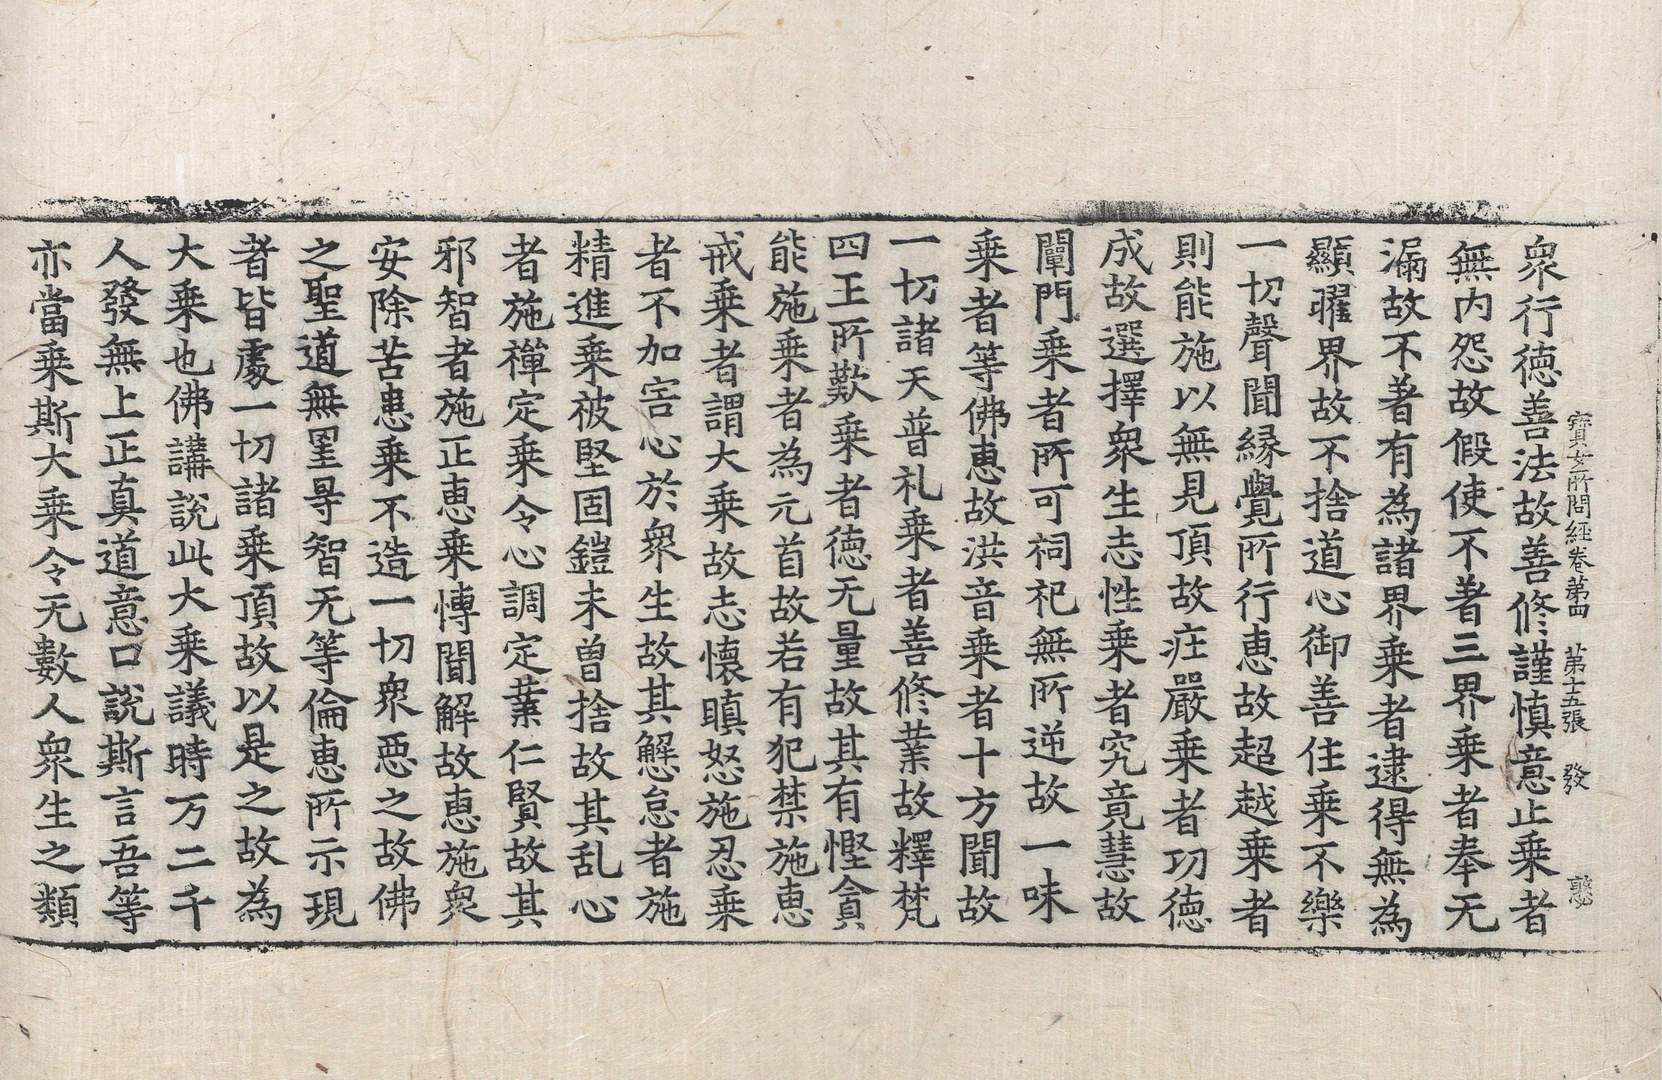 寶女所問經卷第四　第十五張　發
衆行德善法故善修謹慎意止乗者
無内怨故假使不著三界乗者奉无
漏故不著有為諸界乗者逮得無為
顯曜界故不捨道心御善住乗不樂
一切聲聞縁覺所行恵故超越乗者
則能施以無見頂故庄嚴乗者功德
成故選擇衆生志性乗者究竟慧故
闡門乗者所可祠祀無所逆故一味
乗者等佛恵故洪音乗者十方聞故
一切諸天普礼乗者善修業故釋梵
四王所歎乗者德无量故其有慳貪
能施乗者為元首故若有犯禁施恵
戒乗者謂大乗故志懷瞋怒施忍乗
者不加害心於衆生故其懈怠者施
精進乗被堅固鎧未曽捨故其乱心
者施禪定乗令心調定業仁賢故其
邪智者施正恵乗愽聞解故恵施衆
安除苦患乗不造一切衆惡之故佛
之聖道無罣㝵智无等倫恵所示現
者皆處一切諸乗頂故以是之故為
大乗也佛講說此大乗議時万二千
人發無上正真道意口說斯言吾等
亦當乗斯大乗令无數人衆生之類